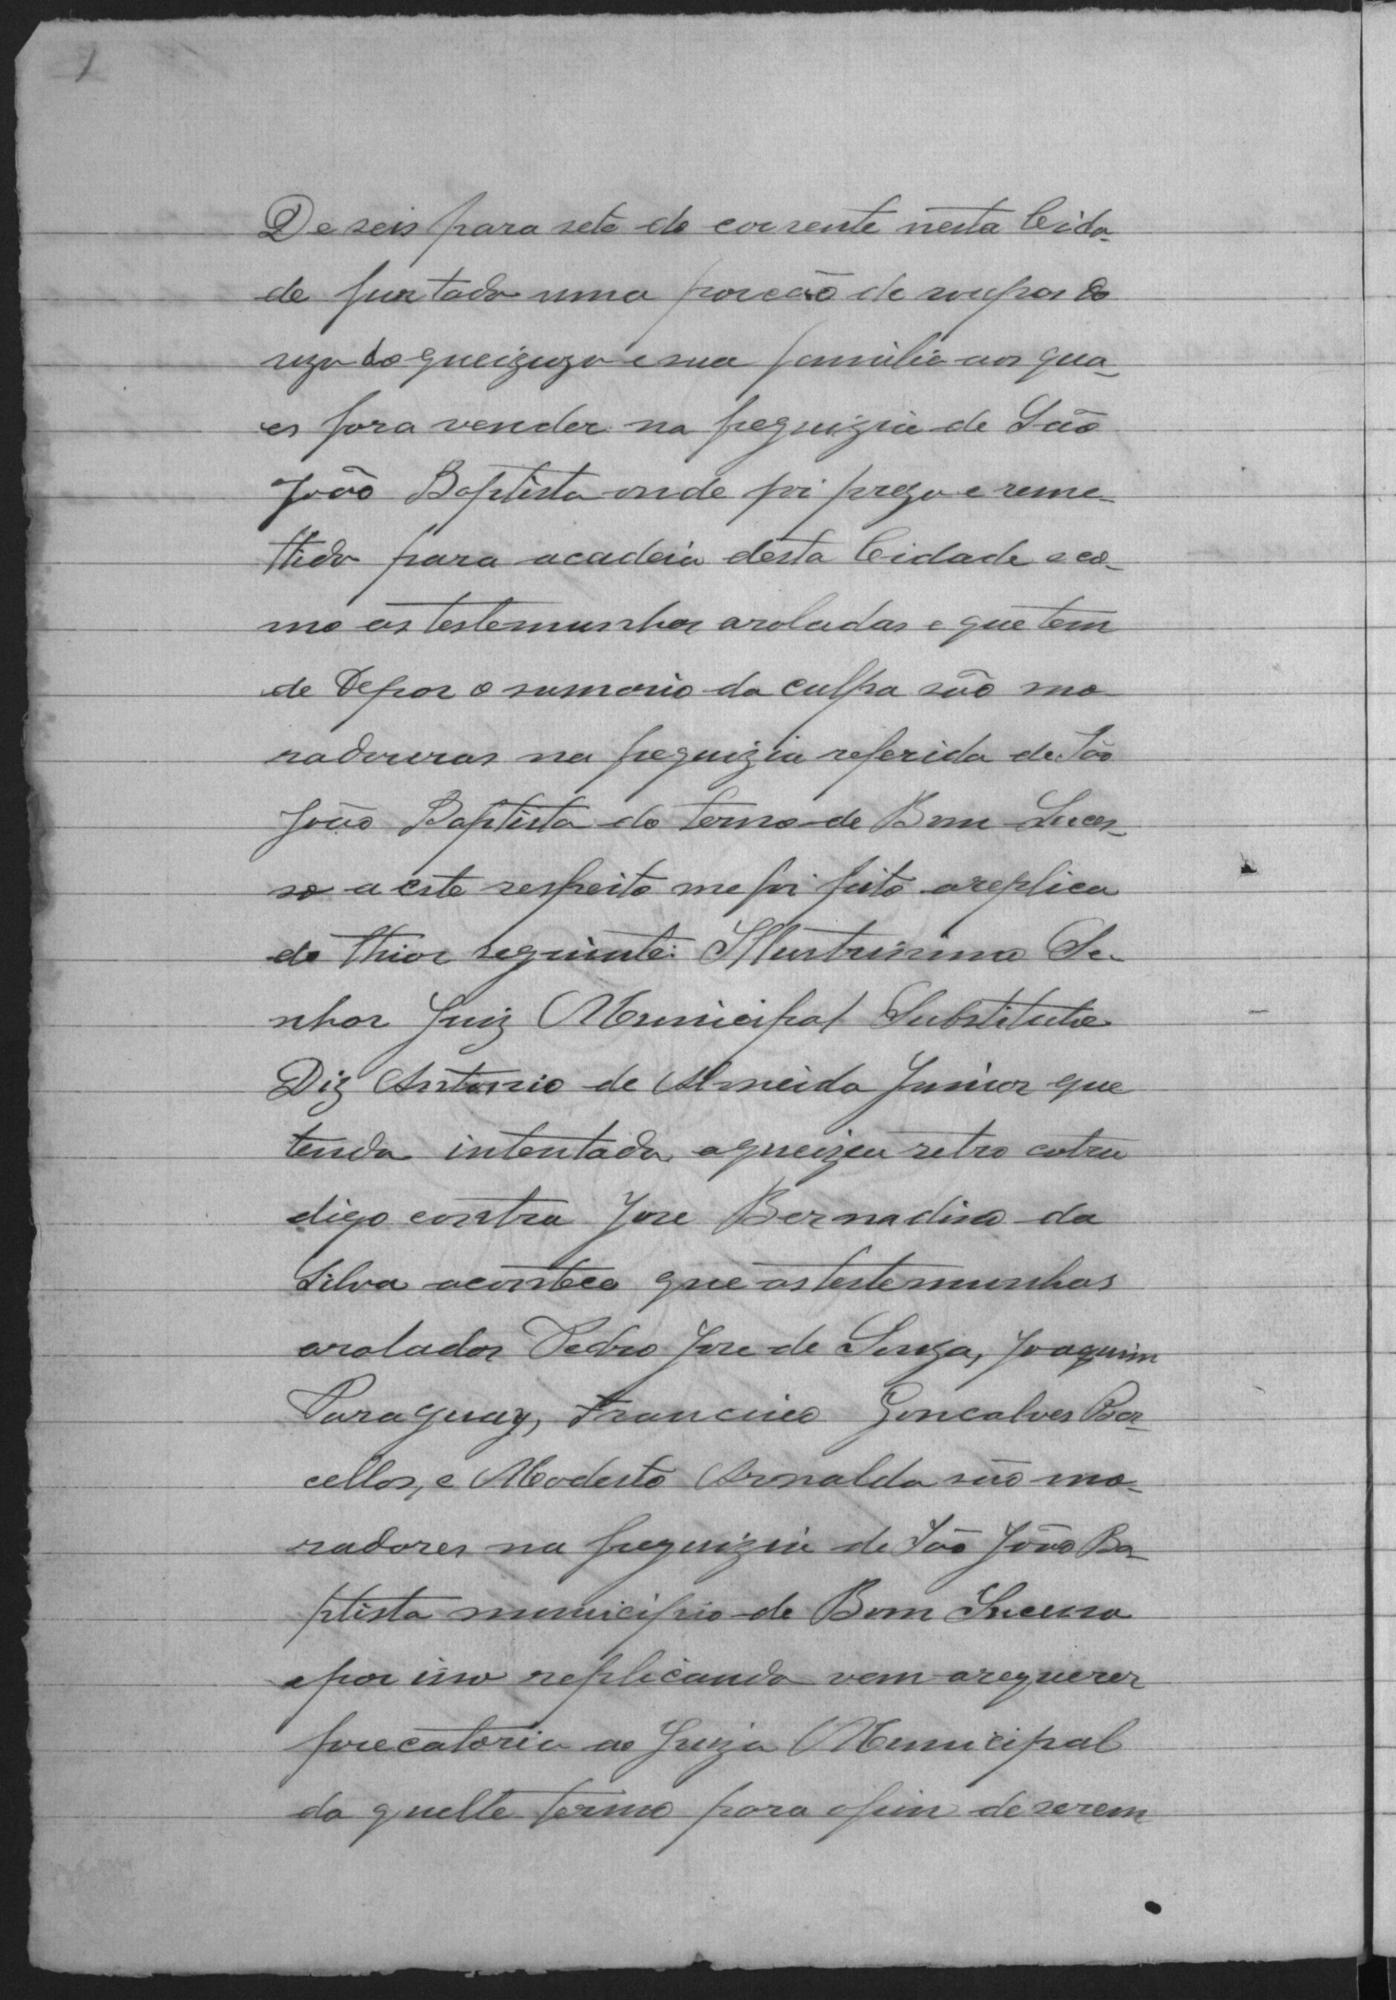 De seis para sete do corrente nesta Cida-
de furtado uma porcão de roupas do
uzo do queizozo e sua familia aos qua-
es fora vender na freguizia de São
João Baptista onde foi prezo e reme-
ttido para acadeia desta Cidade e co-
mo as testemunhas aroladas e que tem
de Depor o sumario da culpa são mo-
radoreras na freguizia referida de São
João Baptista do termo de Bom Suces-
so a este respeito me foi feito areplica
do thior seguinte: Illustrissimo Se-
nhor Juiz Municipal Substituto
Diz Antonio de Almeida Junior que
tendo intentado aqueizea retro cotra
digo contra Jose Bernadino da
Silva acontece que as testemunhas
arolados Pedro Jose de Souza, Joaquim
Paraguay, Francisco Goncalves Bar-
cellos, e Modesto Arnaldo são mo-
radores na freguizia de São João Ba-
ptista municipio de Bom Sucesso
epor isso replicando vem arequerer
precatoria ao Juizo Municipal
da quelle termo para ofim de serem